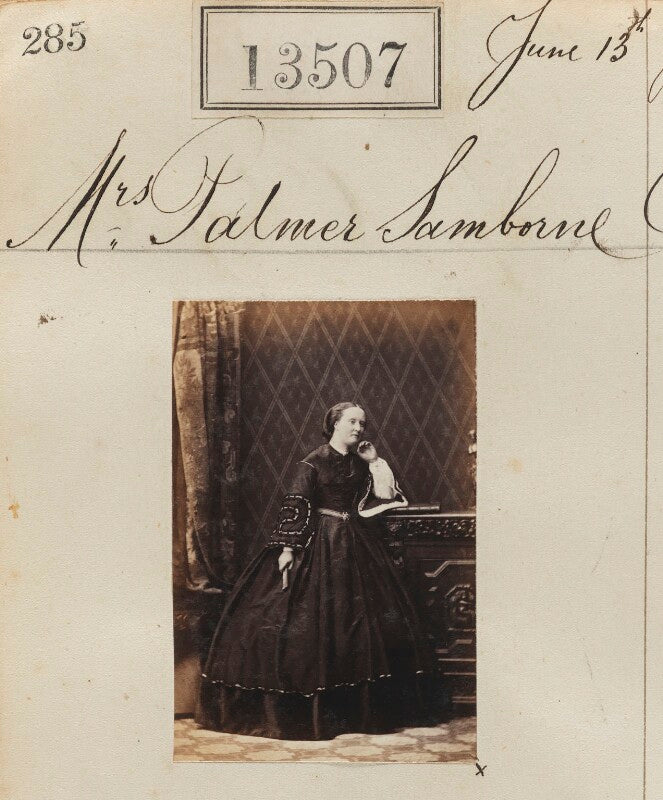 285
13507
June 13th
Mrs Palmer Samborne
x